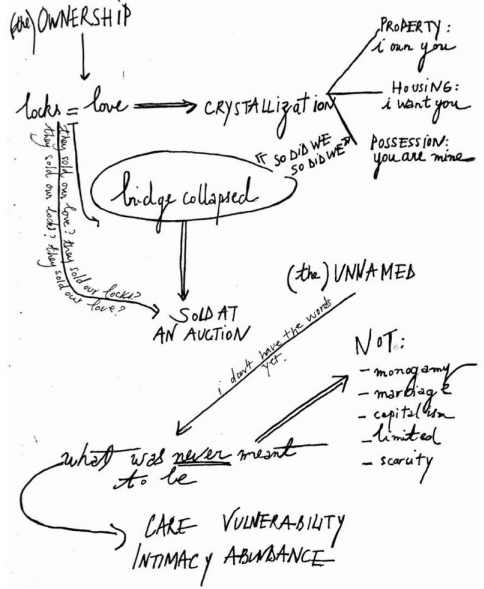 (the) OWNERSHIP
locks = love
CRYSTALLIZATION
PROPERTY:
i own you
HOUSING:
i want you
POSSESSION:
you are mine
"SO DID WE
SO DID WE"
bridge collapsed
they sold our love? they sold our locks?
they sold our locks? they sold our love?
SOLD AT
AN AUCTION
(the) UNNAMED
i don't have the words
yet.
what was never meant
to be
NOT:
- monogamy
- marriage
- capitalism
- limited
- scarcity
CARE VULNERABILITY
INTIMACY ABUNDANCE